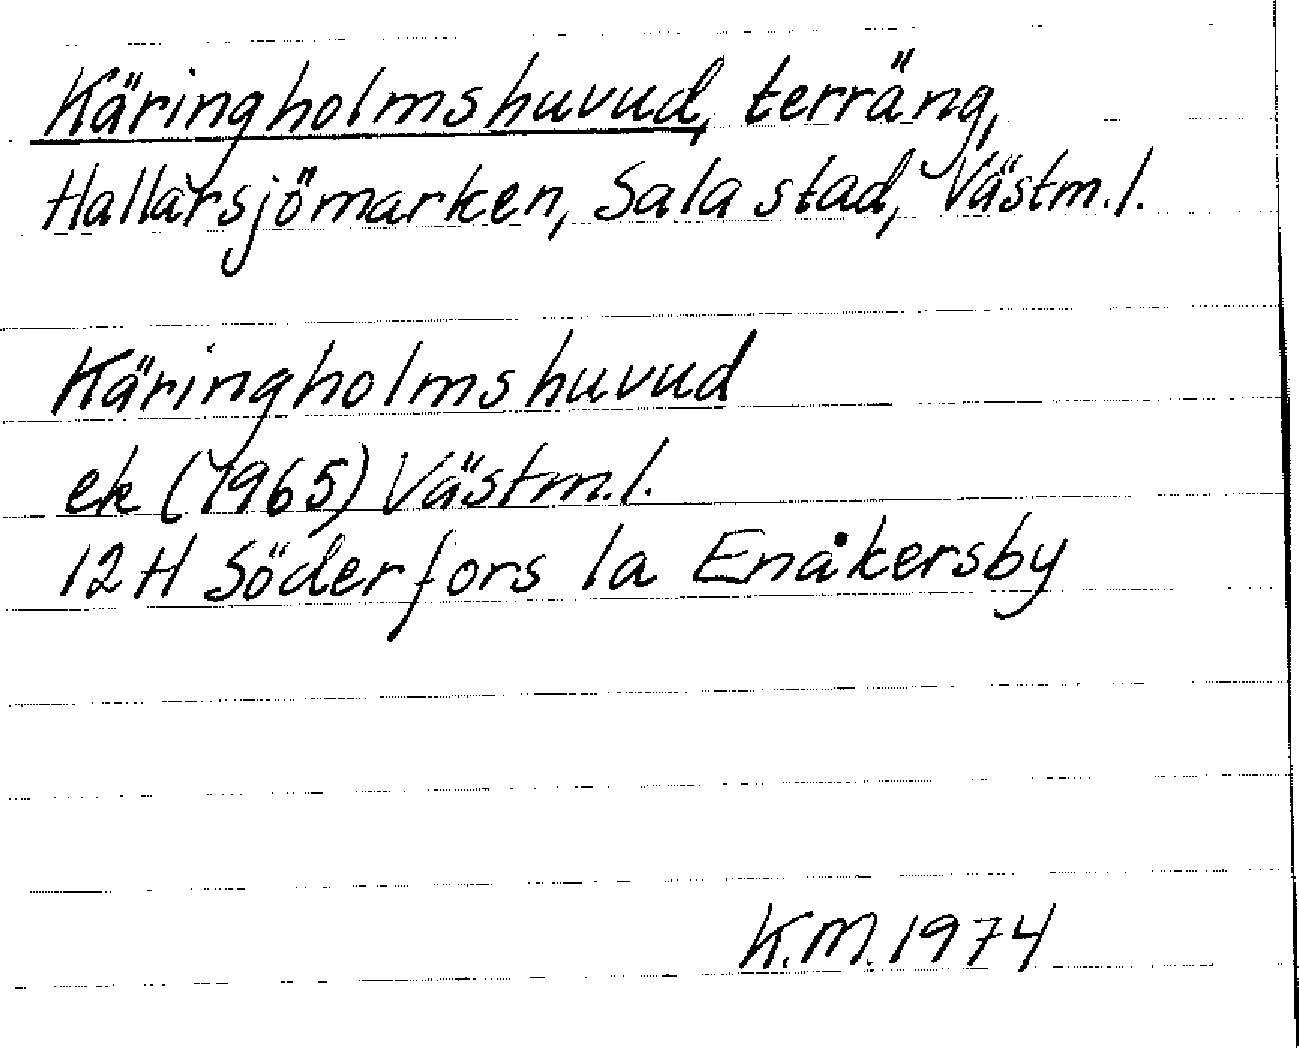 Käringholmshuvud, terräng,
Hallarsjömarken, Sala stad, Västm.l.
Käringholmshuvud
ek (1965) Västm.l.
12 H Söderfors 1a Enåkersby
K.M. 1974